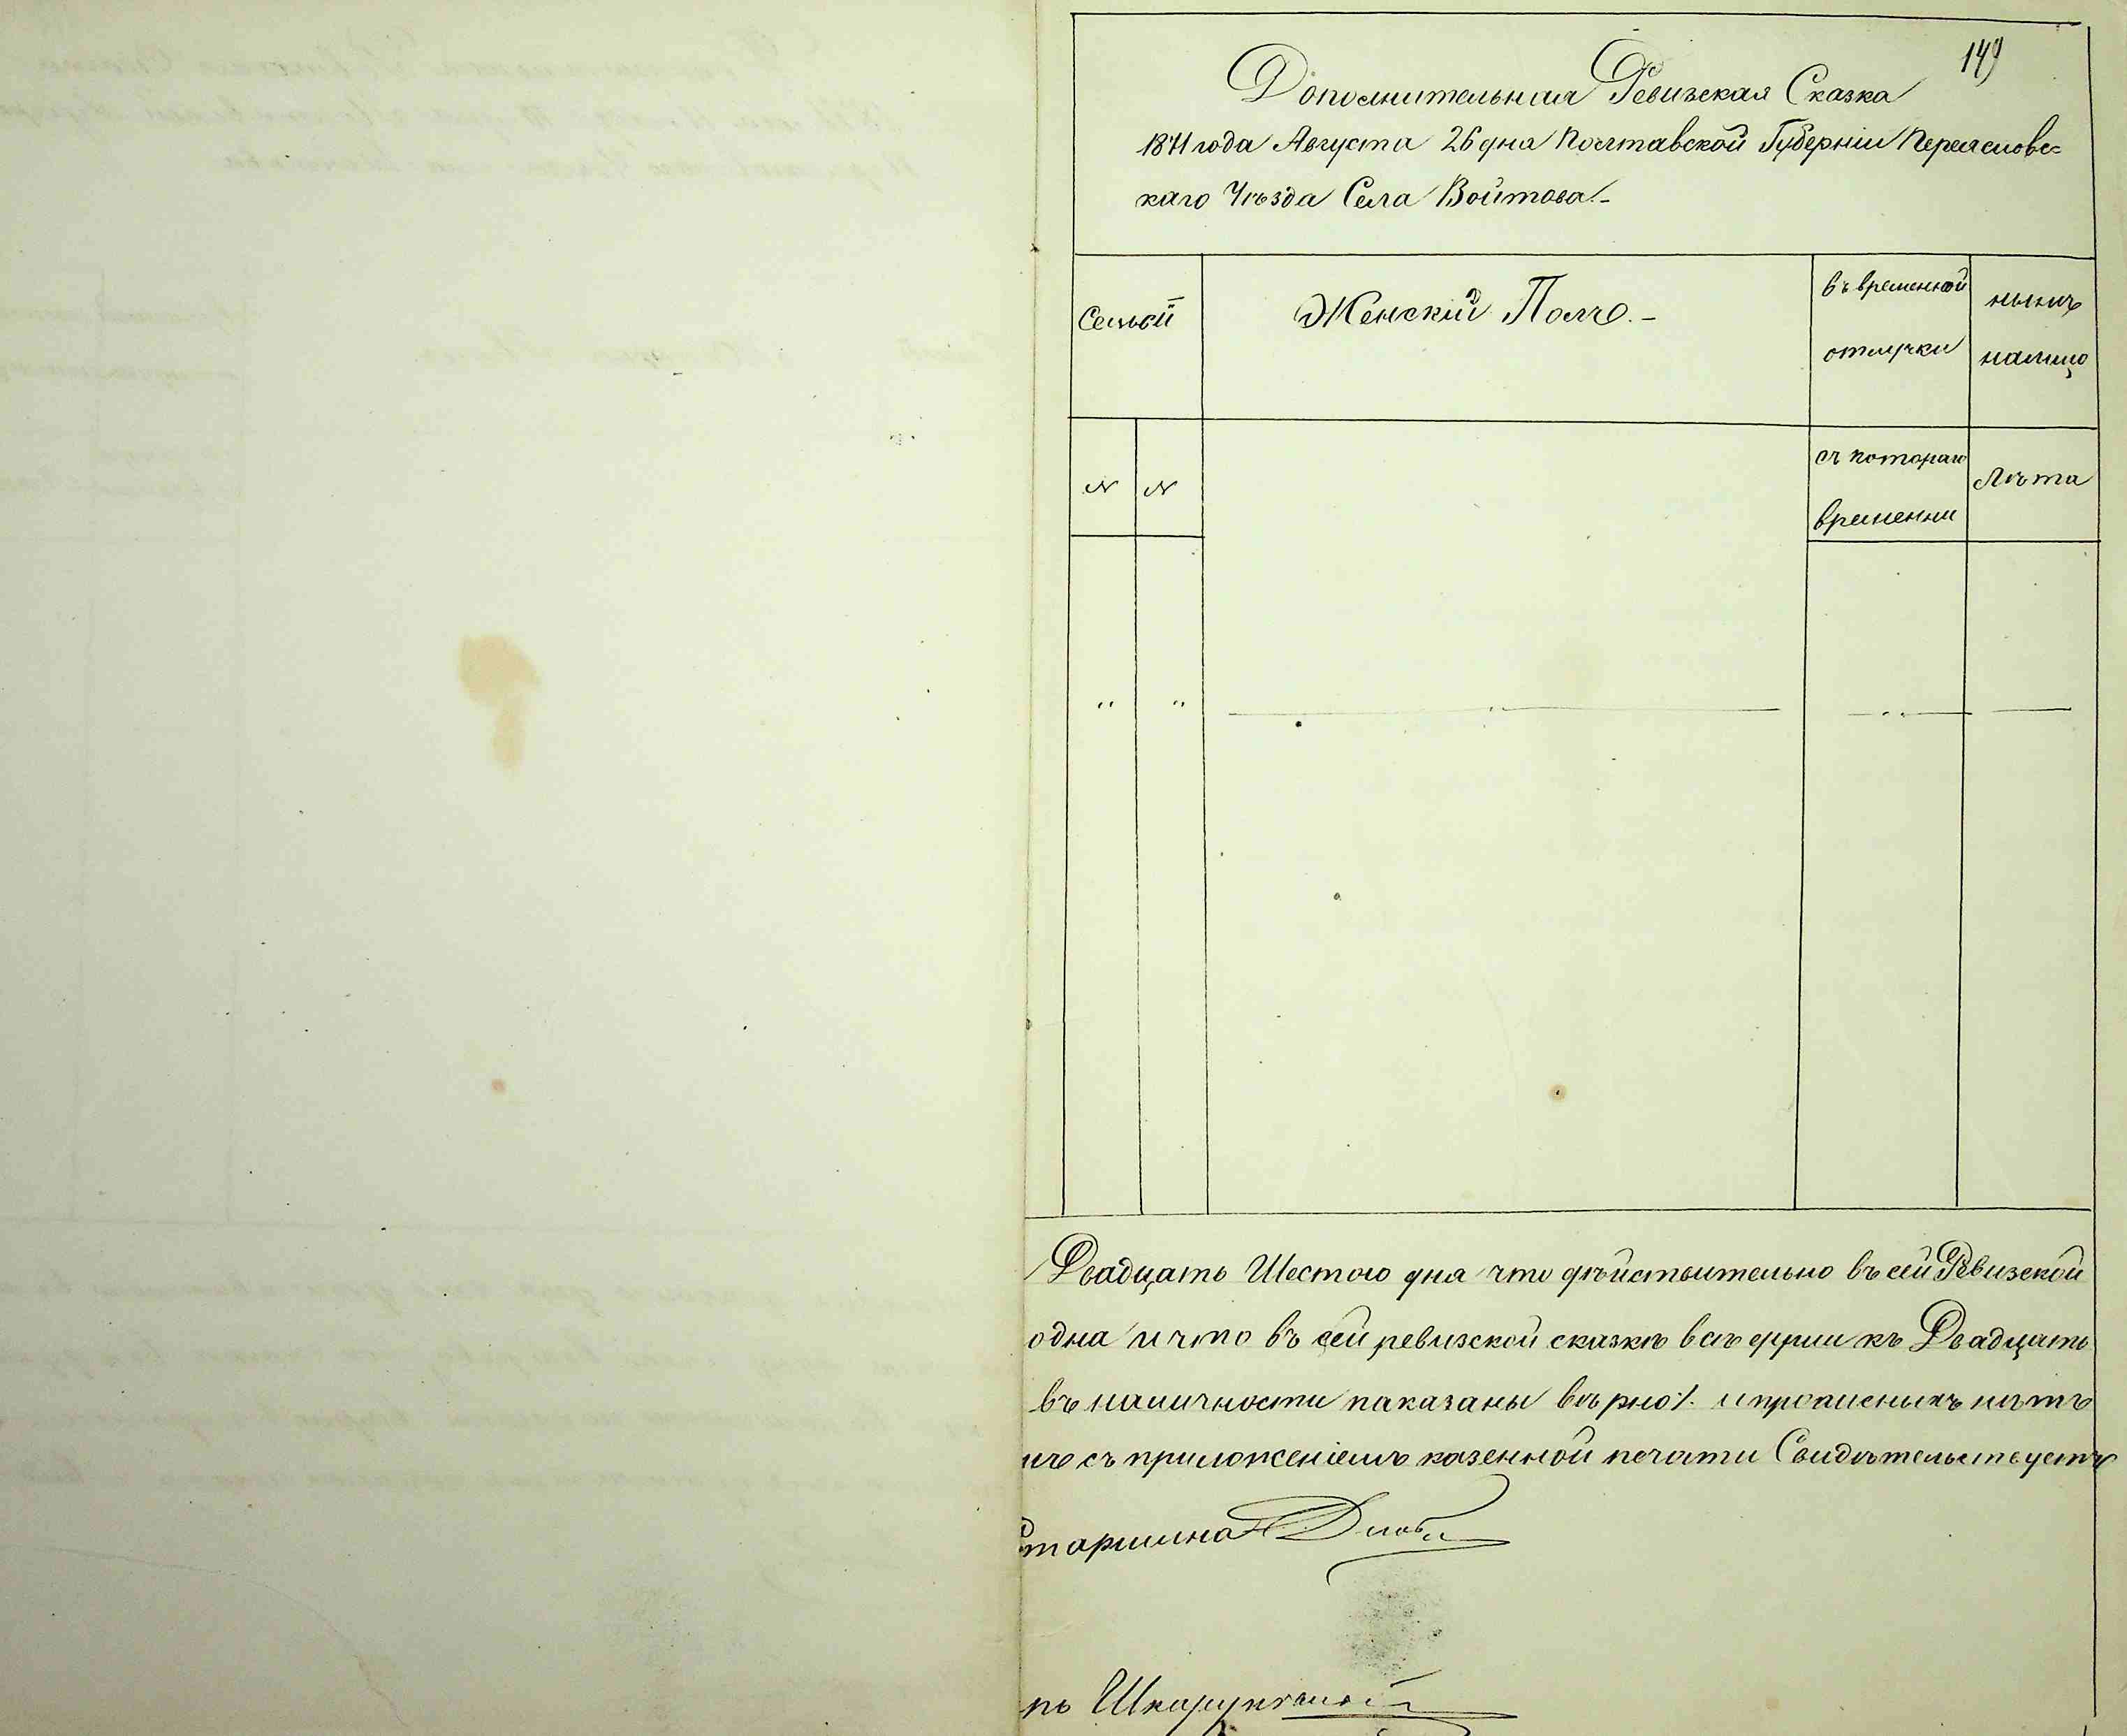 149
Дополнительная Ревизская Сказка
1871 года Августа 26 дня Полтавской Губерніи Переяславс=
каго Уѣзда Села Войтова.-
Семьей
Женскій Полъ.-
въ временной
отлучки
нынѣ
налицо
N N
съ котораго
времени
Лѣта
" " " "
Двадцать Шестого дня что дѣйствительно въ сей Ревизской
одна и что въ сей ревизской сказкѣ всѣ души къ Двадцать
въ наличности паказаны вѣрно%. и прописныхъ нѣтъ
съ приложеніемъ казенной печати Свидѣтельствуетъ
Старшина
рь